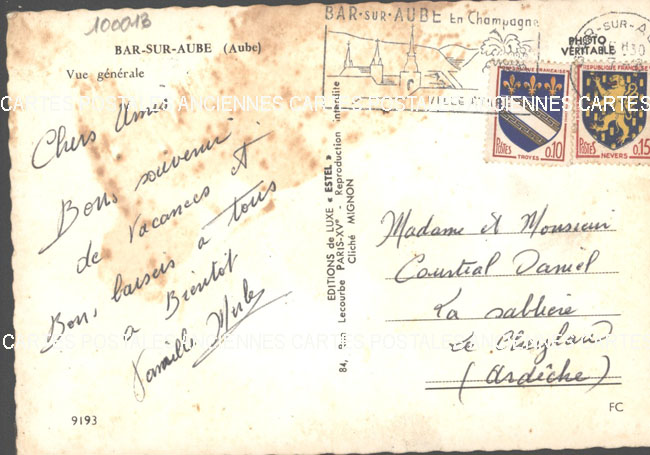 100013
BAR-SUR-AUBE (Aube)
Vue générale
Chers Amis
Bons souvenir
de vacances et
Bons baisers à tous
à Bientôt
Famille
9193
EDITIONS de LUXE « ESTEL »
84, Rue Lecourbe PARIS-XVe - Reproduction interdite
Cliché MIGNON
BAR-SUR-AUBE En Champagne
PHOTO
VÉRITABLE
BAR-SUR-AU
REPUBLIQUE FRANÇAISE
POSTES
0,10
TROYES
REPUBLIQUE FRANÇAISE
POSTES
0,15
NEVERS
Madame et Monsieur
Courtial Daniel
La sablière
Le
(Ardèche)
FC
CARTES POSTALES ANCIENNES CARTES POSTALES ANCIENNES CARTES
CARTES POSTALES ANCIENNES CARTES POSTALES ANCIENNES CARTES